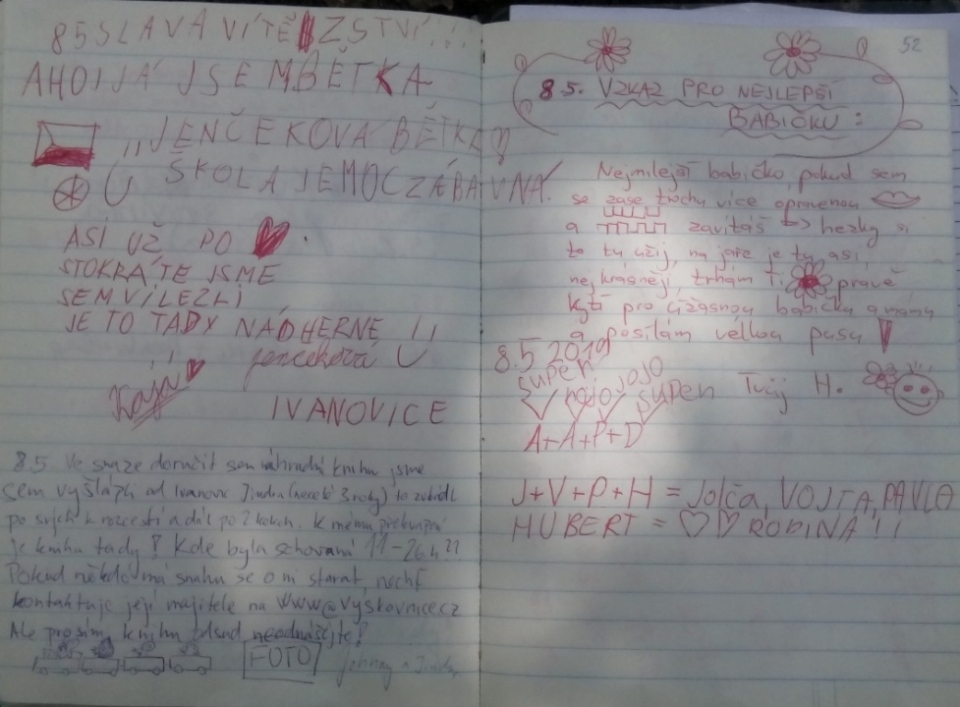 8.5 SLAVA VÍTĚZSTVÍ...
AHOJ JÁ JSEM BĚTKA
„JENČEKOVA BĚTKA
ŠKOLA JE MOC ZÁBAVNÁ.
ASI UŽ PO
STOKRÁTE JSME
SEM VÍLEZLI
JE TO TADY NÁDHERNÉ !!
Kája Jenčeková
IVANOVICE
8.5 Ve snaze doručit sem náhradní knihu jsme
sem vyšlápli od Ivanovic. Jindra (necelé 3 roky) to zvládl
po svých k rozcestí a dál po 2 kolech. K mému překvapení
je kniha tady? Kde byla schovaná 11-26.4??
Pokud někdo má snahu se o ni starat, nechť
kontaktuje její majitele na www@vyskovnice.cz
Ale prosím, knihu odsud neodnášejte!
FOTO
52
8.5. VZKAZ PRO NEJLEPŠÍ
BABIČKU:
Nejmilejší babičko, pokud sem
se zase trochu více opravenou
a zavítáš hezky si
to tu užij, na jaře je tu asi
nejkrásněji, trhám Ti právě
kytí pro úžasnou babičku a mámu
a posílám velkou pusu
Tvůj H.
8.5 2019
super jojojojo super
A+A+P+D
J+V+P+H = Jolča, VOJTA, PAVLA
HUBERT = RODINA!!